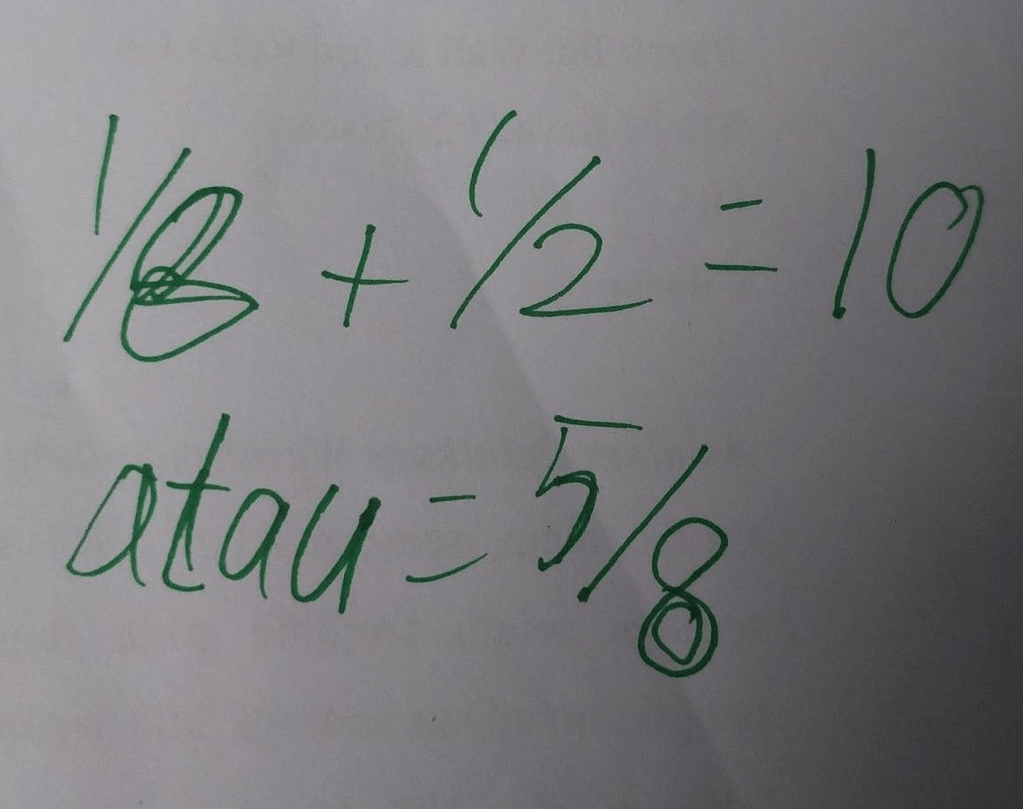 1/8 + 1/2 = 10
atau = 5/8